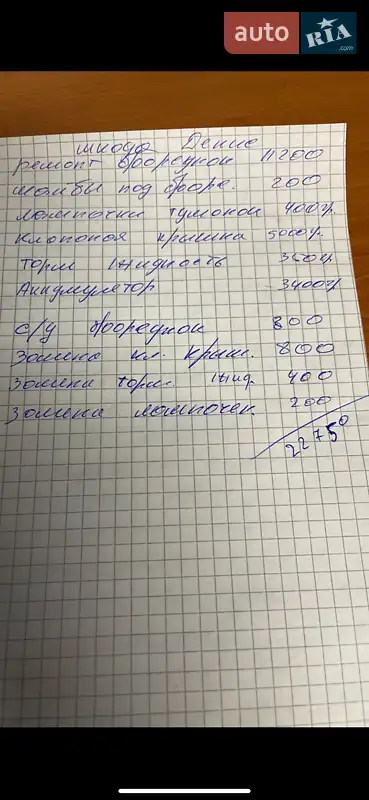 auto RIA.com
шкода Денис
ремонт форсунок 11200
шайбы под форс. 200
лампочки туманок 400гр.
клапоная крышка 5000гр.
Торм жидкость 350гр
Аккумулятор - 3400гр
с/у форсунок 800
Замена кл. крыш. 800
Замена торм. жид. 400
Замена лампочек 200
22750